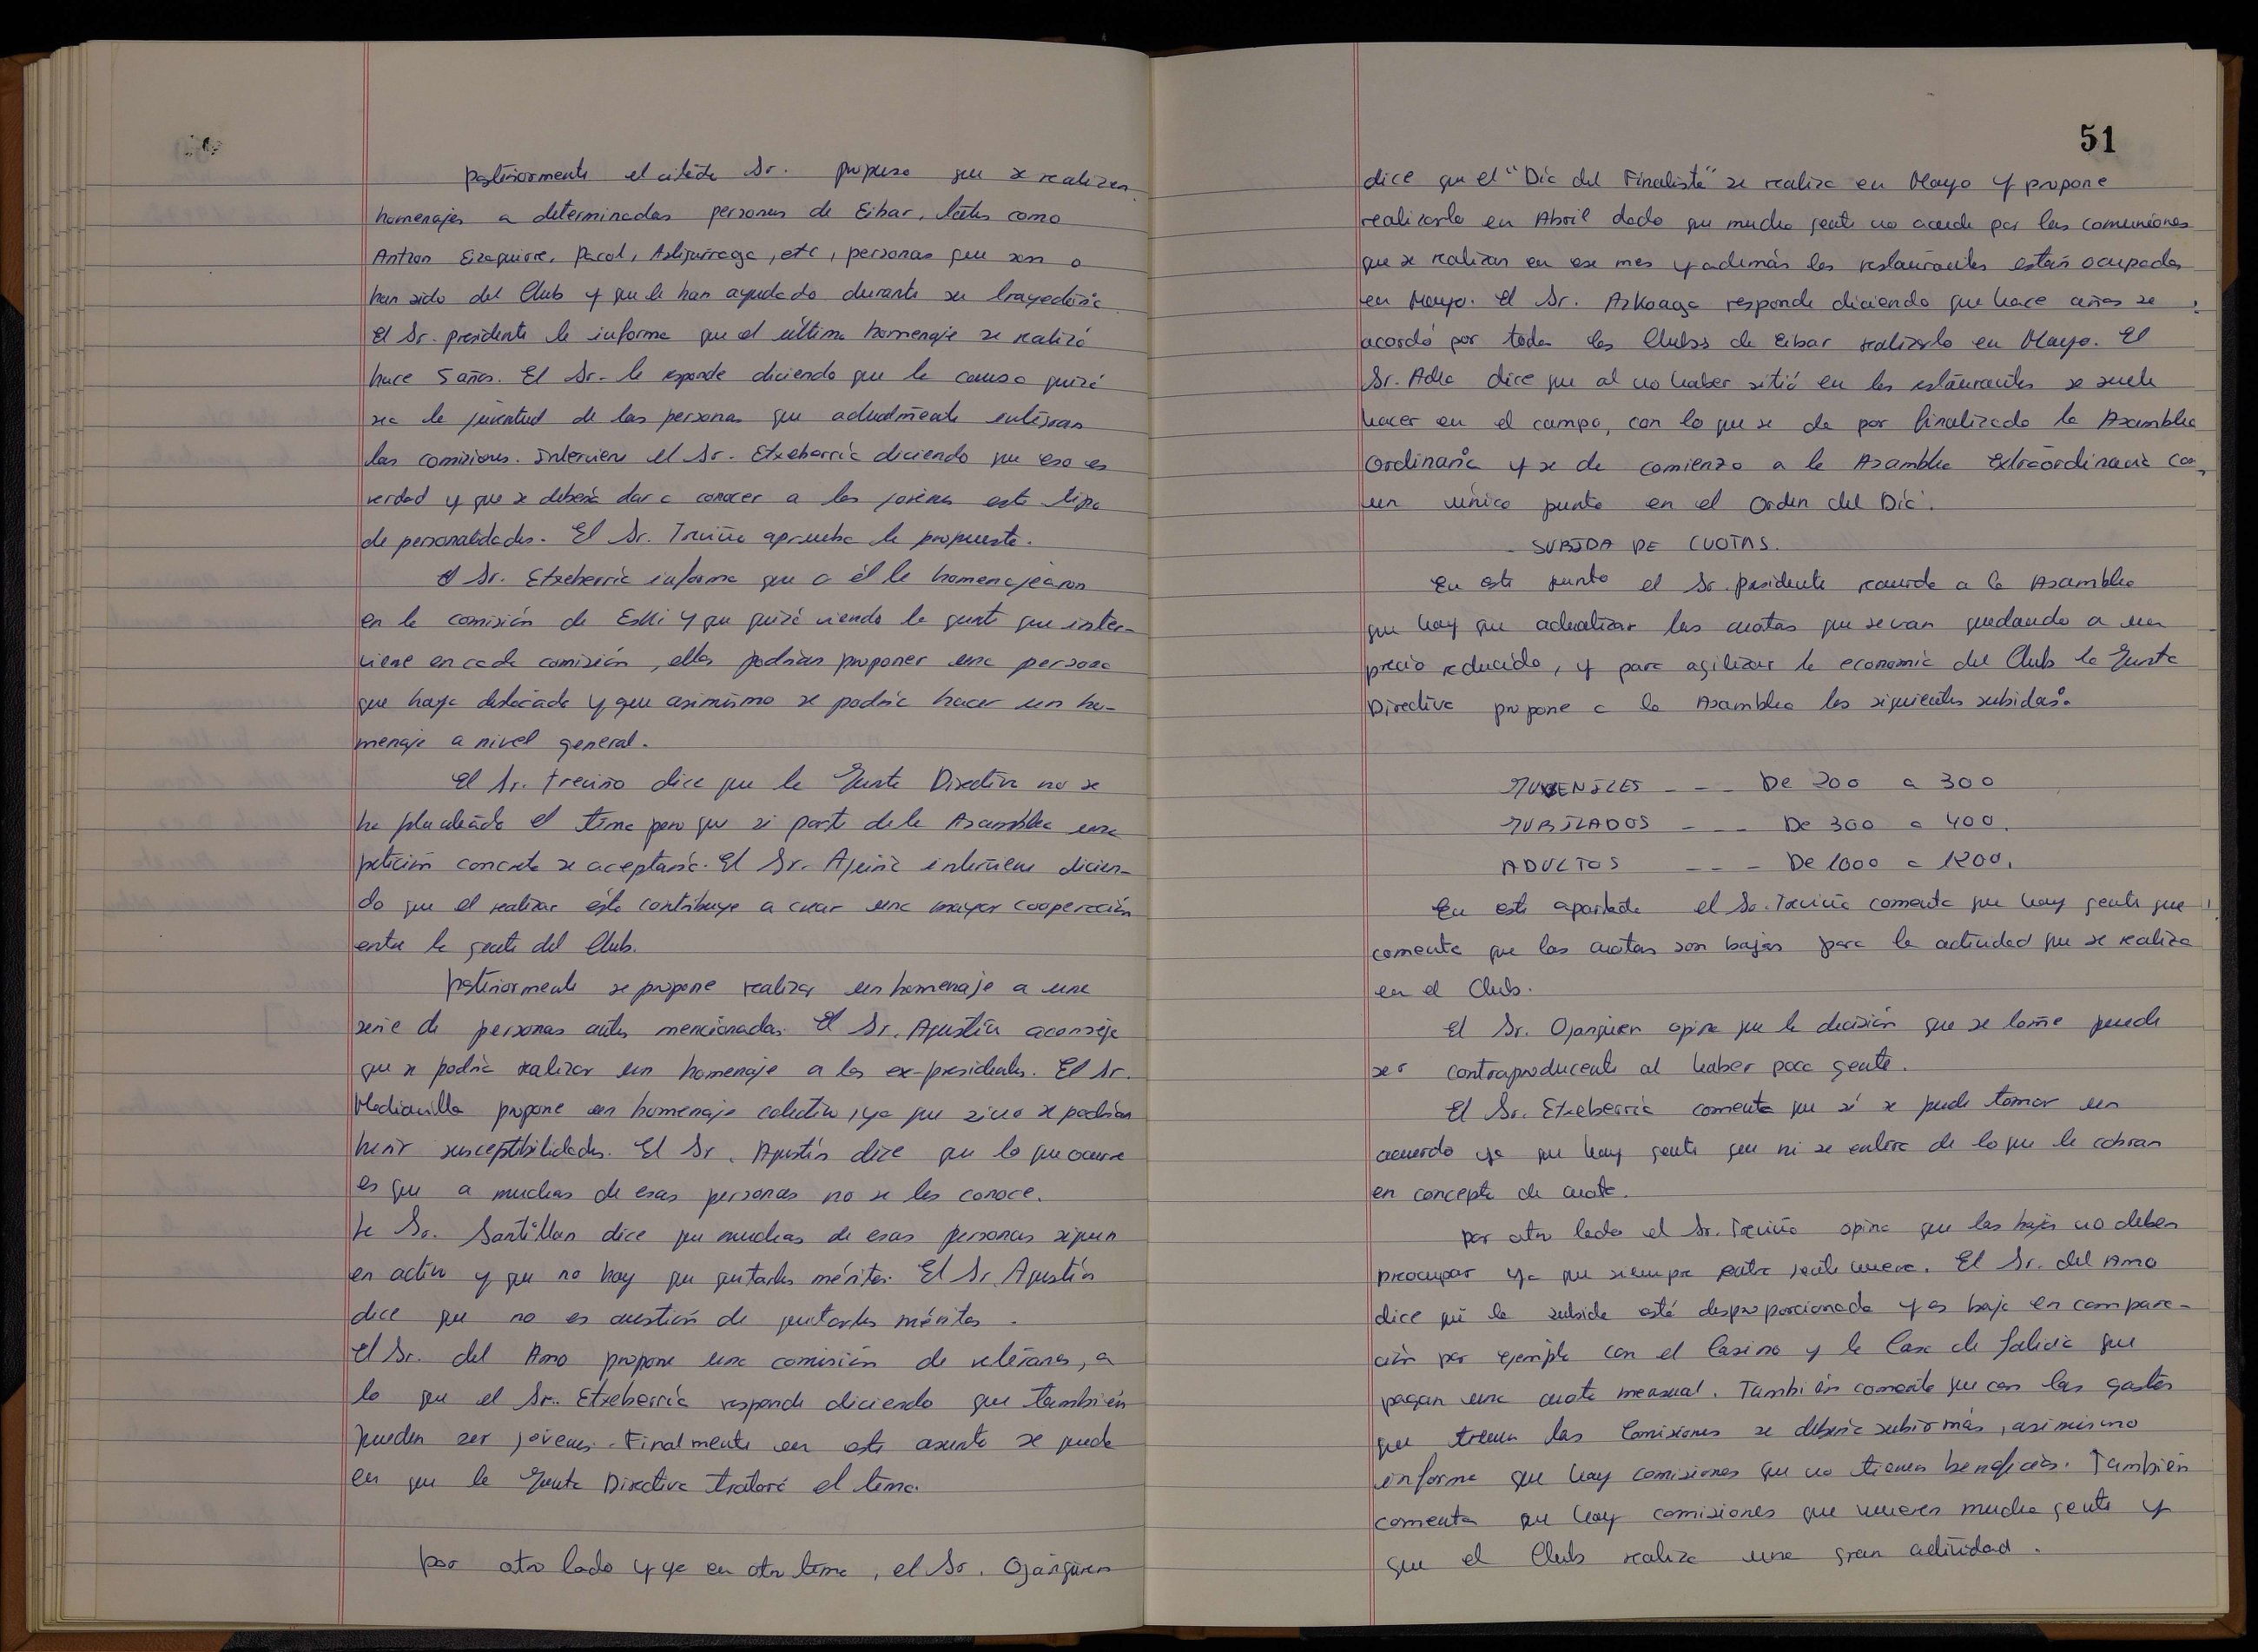 posteriormente el citado Sr. propuso que se realicen
homenajes a determinadas personas de Eibar, tales como
Antxon Eizaguirre, Pacol, Astigarraga, etc, personas que son o
han sido del Club y que le han ayudado durante su trayectoria.
El Sr. presidente le informa que el último homenaje se realizó
hace 5 años. El Sr. le responde diciendo que la causa quizá
sea la juventud de las personas que actualmente integran
las comisiones. Interviene el Sr. Etxeberria diciendo que eso es
verdad y que se debería dar a conocer a los jóvenes este tipo
de personalidades. El Sr. Treviño aprueba la propuesta.
El Sr. Etxeberria informa que a él le homenajearon
en la comisión de Eski y que quizá viendo la gente que inter-
viene en cada comisión, ellos podrían proponer una persona
que haya destacado y que asimismo se podría hacer un ho-
menaje a nivel general.
El Sr. Treviño dice que la Junta Directiva no se
ha planteado el tema pero que si parte de la Asamblea una
petición concreta se aceptaría. El Sr. interviene dicien-
do que el realizar ésto contribuye a crear una mayor cooperación
entre la gente del Club.
posteriormente se propone realizar un homenaje a una
serie de personas antes mencionadas. El Sr. Agustín aconseja
que se podría realizar un homenaje a los ex-presidentes. El Sr.
Mediavilla propone un homenaje colectivo, ya que sino se podrían
herir susceptibilidades. El Sr. Agustín dice que lo que ocurre
es que a muchas de esas personas no se les conoce.
Sr. Santillan dice que muchas de esas personas siguen
en activo y que no hay que quitarles méritos. El Sr. Agustín
dice que no es cuestión de quitarles méritos.
El Sr. del Amo propone una comisión de veteranos, a
lo que el Sr. Etxeberria responde diciendo que también
pueden ser jóvenes. Finalmente en este asunto se queda
en que la Junta Directiva tratará el tema.
por otro lado y ya en otro tema, el Sr. Ojanguren
51
dice que el "Día del Finalista" se realiza en Mayo y propone
realizarlo en Abril dado que mucha gente no acude por las comuniones
que se realizan en ese mes y además los restaurantes están ocupados
en Mayo. El Sr. Azkoaga responde diciendo que hace años se
acordó por todos los Clubs de Eibar realizarlo en Mayo. El
Sr. dice que al no haber sitio en los restaurantes se suele
hacer en el campo, con lo que se da por finalizado la Asamblea
Ordinaria y se da comienzo a la Asamblea Extraordinaria con
un único punto en el Orden del Día.
- SUBIDA DE CUOTAS.
En este punto el Sr. presidente recuerda a la Asamblea
que hay que actualizar las cuotas que se van quedando a un
precio reducido, y para agilizar la economía del Club la Junta
Directiva propone a la Asamblea las siguientes subidas:
JUVENILES - - - De 200 a 300
JUBILADOS - - - De 300 a 400.
ADULTOS - - - De 1000 a 1200.
En este apartado el Sr. Treviño comenta que hay gente que
comenta que las cuotas son bajas para la actividad que se realiza
en el Club.
El Sr. Ojanguren opina que la decisión que se tome puede
ser contraproducente al haber poca gente.
El Sr. Etxeberria comenta que sí se puede tomar un
acuerdo ya que hay gente que ni se entera de lo que le cobran
en concepto de cuota.
por otro lado el Sr. Treviño opina que las bajas no deben
preocupar ya que siempre entra gente nueva. El Sr. del Amo
dice que la subida está desproporcionada y es baja en compara-
ción por ejemplo con el Casino y la Casa de Galicia que
pagan una cuota mensual. También comenta que con los gastos
que tienen las Comisiones se debería subir más, asimismo
informa que hay comisiones que no tienen beneficios. También
comenta que hay comisiones que mueven mucha gente y
que el Club realiza una gran actividad.